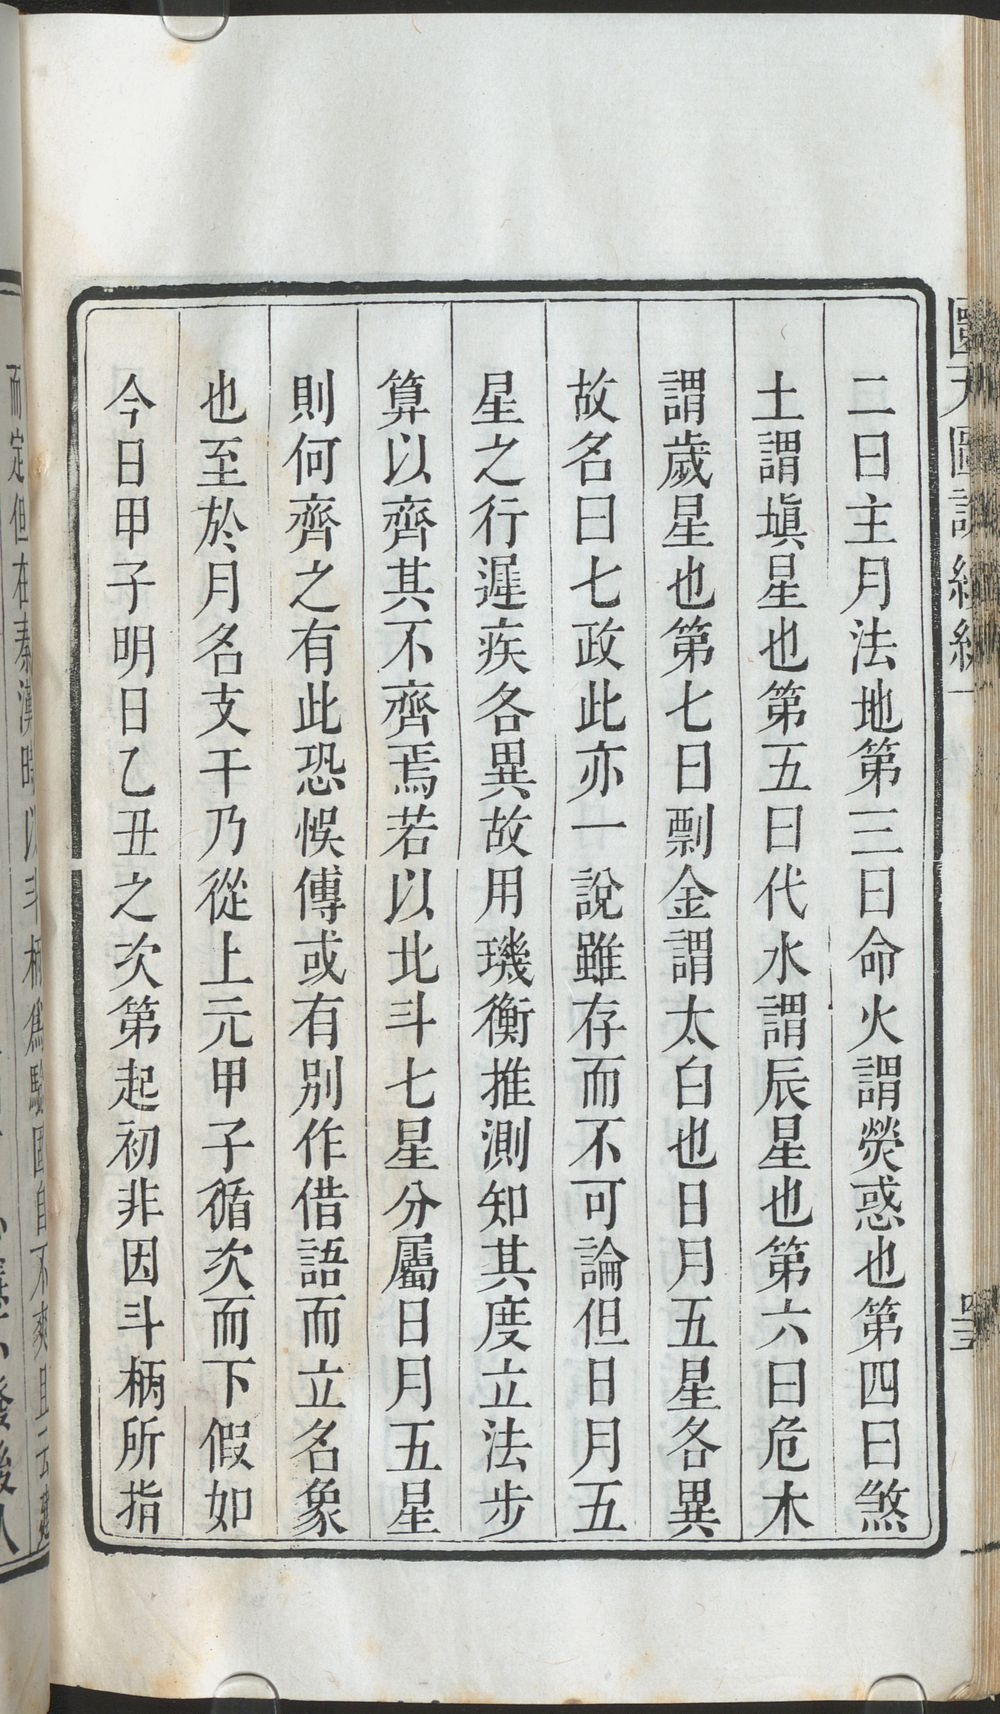 二曰主月法地第三曰命火謂熒惑也第四曰煞
土謂塡星也第五曰代水謂辰星也第六曰危木
謂歲星也第七曰剽金謂太白也日月五星各異
故名曰七政此亦一說雖存而不可論但日月五
星之行遲疾各異故用璣衡推測知其度立法步
算以齊其不齊焉若以北斗七星分屬日月五星
則何齊之有此恐悞傳或有別作借語而立名象
也至於月名支干乃從上元甲子循次而下假如
今日甲子明日乙丑之次第起初非因斗柄所指
而定但在秦漢時以斗柄爲驗固自不爽且云建